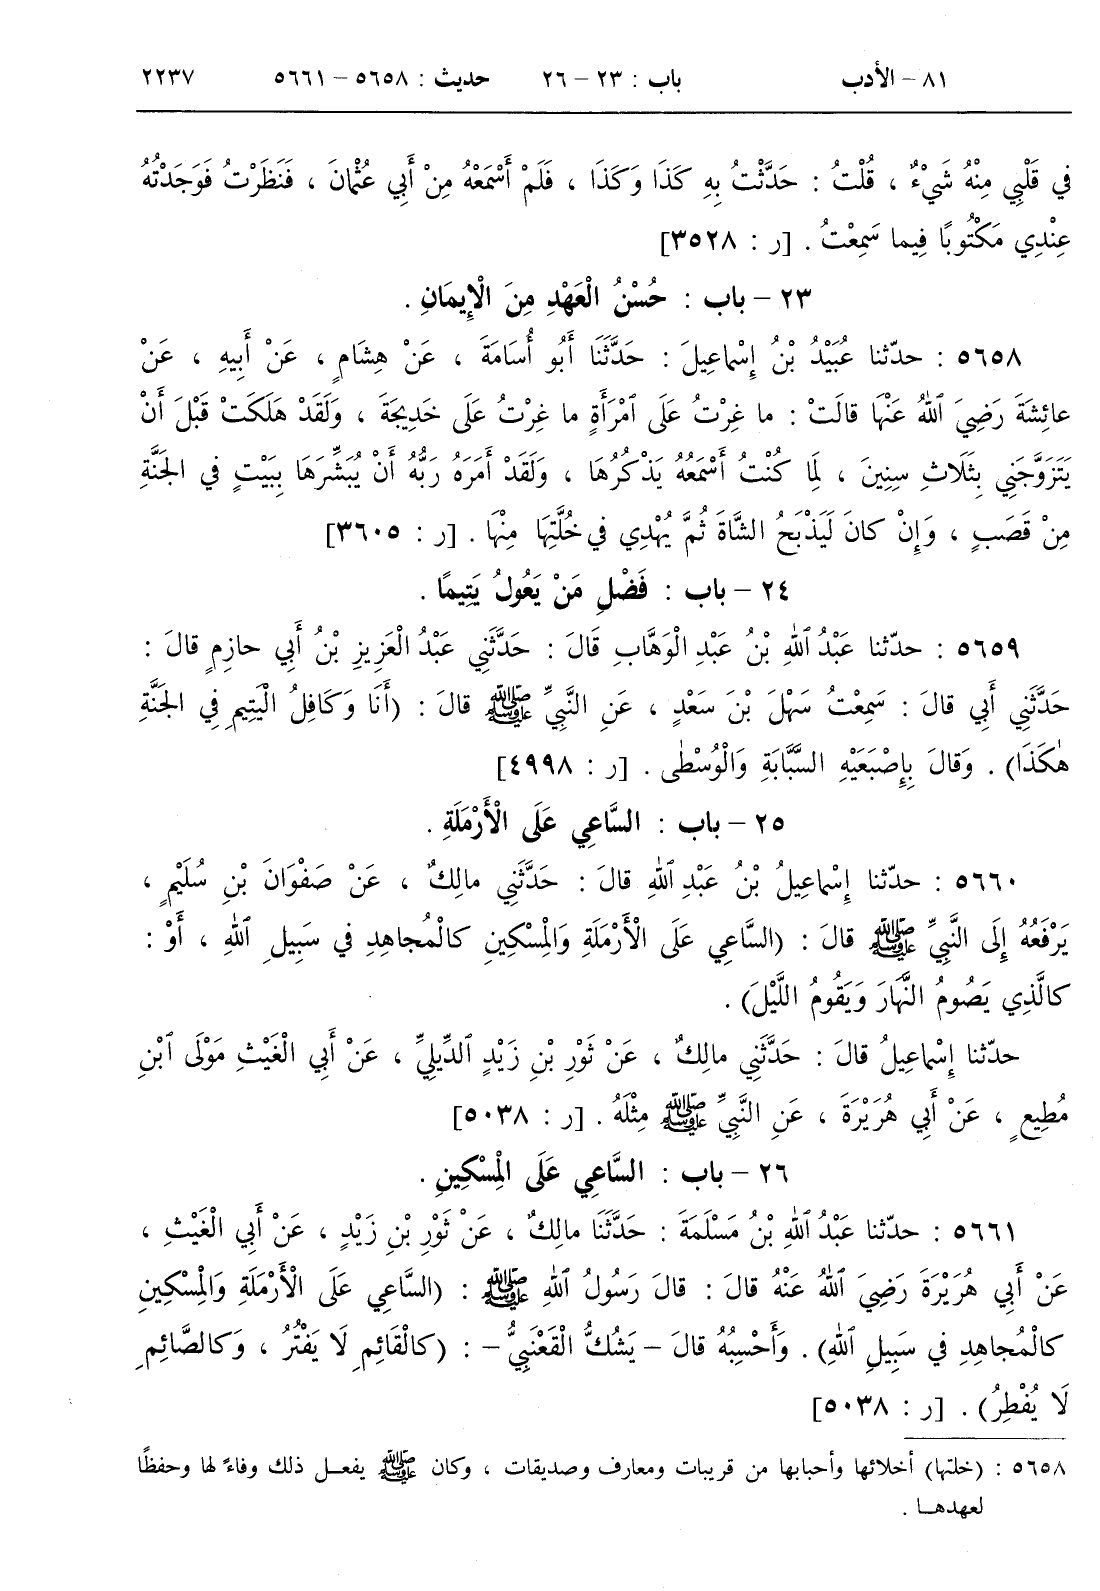 ٨١ – الأدب باب : ٢٣ – ٢٦ حديث : ٥٦٥٨ – ٥٦٦١ ٢٢٣٧
في قَلْبِي مِنْهُ شَيْءٌ ، قُلْتُ : حَدَّثْتُ بِهِ كَذَا وَكَذَا ، فَلَمْ أَسْمَعْهُ مِنْ أَبِي عُثْمَانَ ، فَنَظَرْتُ فَوَجَدْتُهُ
عِنْدِي مَكْتُوبًا فِيما سَمِعْتُ . [ر : ٣٥٢٨]
٢٣ – باب : حُسْنُ الْعَهْدِ مِنَ الْإِيمَانِ .
٥٦٥٨ : حدّثنا عُبَيْدُ بْنُ إِسْماعِيلَ : حَدَّثَنَا أَبُو أُسَامَةَ ، عَنْ هِشَامٍ ، عَنْ أَبِيهِ ، عَنْ
عائِشَةَ رَضِيَ ٱللهُ عَنْهَا قالَتْ : ما غِرْتُ عَلَى ٱمْرَأَةٍ ما غِرْتُ عَلَى خَدِيجَةَ ، وَلَقَدْ هَلَكَتْ قَبْلَ أَنْ
يَتَزَوَّجَنِي بِثَلَاثِ سِنِينَ ، لِمَا كُنْتُ أَسْمَعُهُ يَذْكُرُهَا ، وَلَقَدْ أَمَرَهُ رَبُّهُ أَنْ يُبَشِّرَهَا بِبَيْتٍ في الجَنَّةِ
مِنْ قَصَبٍ ، وَإِنْ كانَ لَيَذْبَحُ الشَّاةَ ثُمَّ يُهْدِي في خُلَّتِهَا مِنْهَا . [ر : ٣٦٠٥]
٢٤ – باب : فَضْلِ مَنْ يَعُولُ يَتِيمًا .
٥٦٥٩ : حدّثنا عَبْدُ اللهِ بْنُ عَبْدِ الْوَهَّابِ قَالَ : حَدَّثَنِي عَبْدُ الْعَزِيزِ بْنُ أَبِي حازِمٍ قالَ :
حَدَّثَنِي أَبِي قالَ : سَمِعْتُ سَهْلَ بْنَ سَعْدٍ ، عَنِ النَّبِيِّ ﷺ قالَ : (أَنَا وَكَافِلُ الْيَتِيمِ فِي الجَنَّةِ
هٰكَذَا) . وَقالَ بِإِصْبَعَيْهِ السَّبَّابَةِ وَالْوُسْطٰى . [ر : ٤٩٩٨]
٢٥ – باب : السَّاعِي عَلَى الْأَرْمَلَةِ .
٥٦٦٠ : حدّثنا إِسْماعِيلُ بْنُ عَبْدِ ٱللهِ قالَ : حَدَّثَنِي مالِكٌ ، عَنْ صَفْوَانَ بْنِ سُلَيْمٍ ،
يَرْفَعُهُ إِلَى النَّبِيِّ ﷺ قالَ : (السَّاعِي عَلَى الْأَرْمَلَةِ وَالْمِسْكِينِ كالْمُجاهِدِ في سَبِيلِ ٱللهِ ، أَوْ :
كالَّذِي يَصُومُ النَّهَارَ وَيَقُومُ اللَّيْلَ) .
حدّثنا إِسْماعِيلُ قالَ : حَدَّثَنِي مالِكٌ ، عَنْ ثَوْرِ بْنِ زَيْدٍ ٱلدِّيلِيِّ ، عَنْ أَبِي الْغَيْثِ مَوْلَى ٱبْنِ
مُطِيعٍ ، عَنْ أَبِي هُرَيْرَةَ ، عَنِ النَّبِيِّ ﷺ مِثْلَهُ . [ر : ٥٠٣٨]
٢٦ – باب : السَّاعِي عَلَى الْمِسْكِينِ .
٥٦٦١ : حدّثنا عَبْدُ اللهِ بْنُ مَسْلَمَةَ : حَدَّثَنَا مالِكٌ ، عَنْ ثَوْرِ بْنِ زَيْدٍ ، عَنْ أَبِي الْغَيْثِ ،
عَنْ أَبِي هُرَيْرَةَ رَضِيَ ٱللهُ عَنْهُ قالَ : قالَ رَسُولُ اللهِ ﷺ : (السَّاعِي عَلَى الْأَرْمَلَةِ وَالْمِسْكِينِ
كالْمُجاهِدِ في سَبِيلِ اللهِ) . وَأَحْسِبُهُ قالَ – يَشُكُّ الْقَعْنَبِيُّ – : (كالْقَائِمِ لَا يَفْتُرُ ، وَكالصَّائِمِ
لَا يُفْطِرُ) . [ر : ٥٠٣٨]
٥٦٥٨ : (خلتها) أخلائها وأحبابها من قريبات ومعارف وصديقات ، وكان ﷺ يفعل ذلك وفاءً لها وحفظًا
لعهدها .